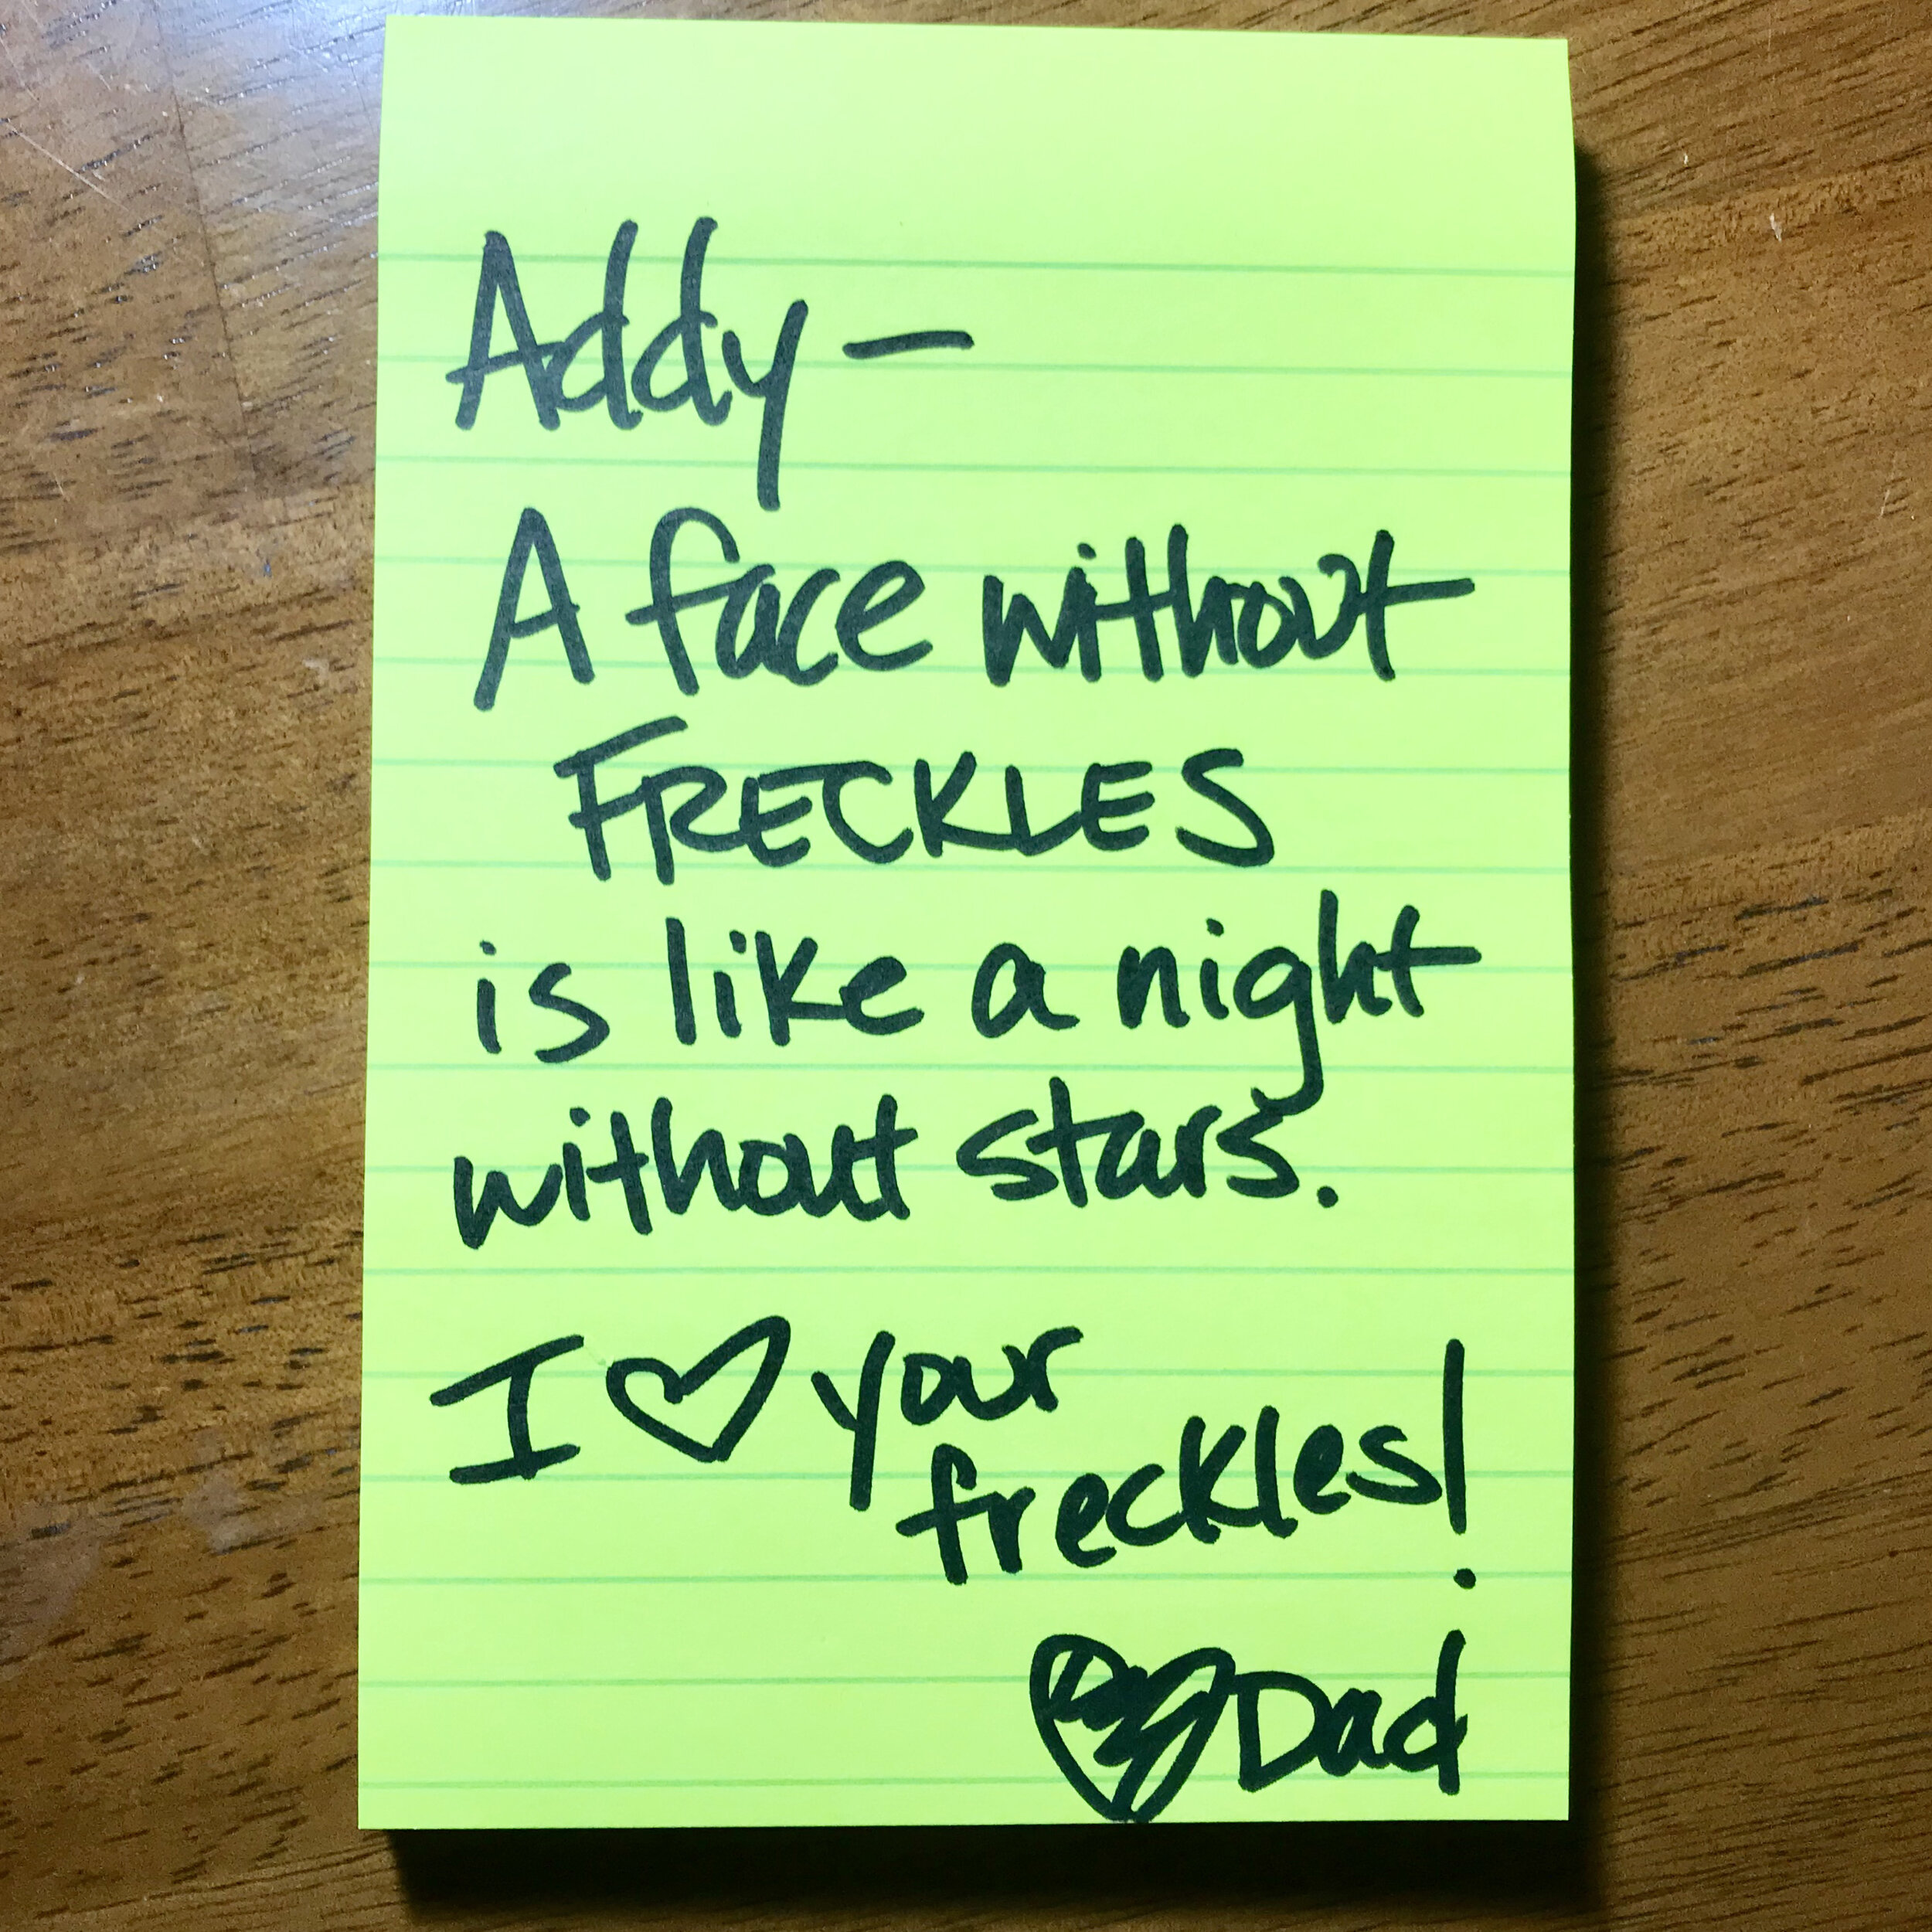 Addy –
A face without
FRECKLES
is like a night
without stars.
I ♡ your
freckles!
♥ Dad